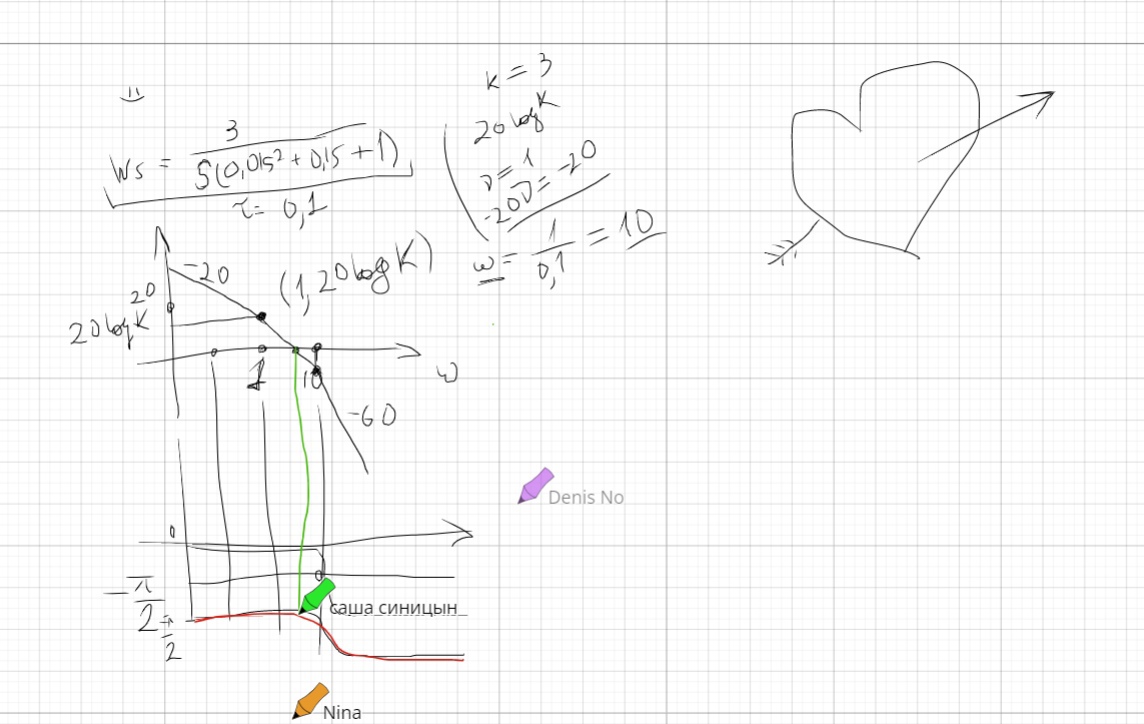 3
Ws = S(0,01s² + 0,1s + 1)
τ = 0,1
k = 3
20 log K
ν = 1
-20ν = -20
ω = 1/0,1 = 10
-20
(1, 20 log K)
20
20 log K
1
10
ω
-60
0
-π/2
π/2
Denis No
саша синицын
Nina